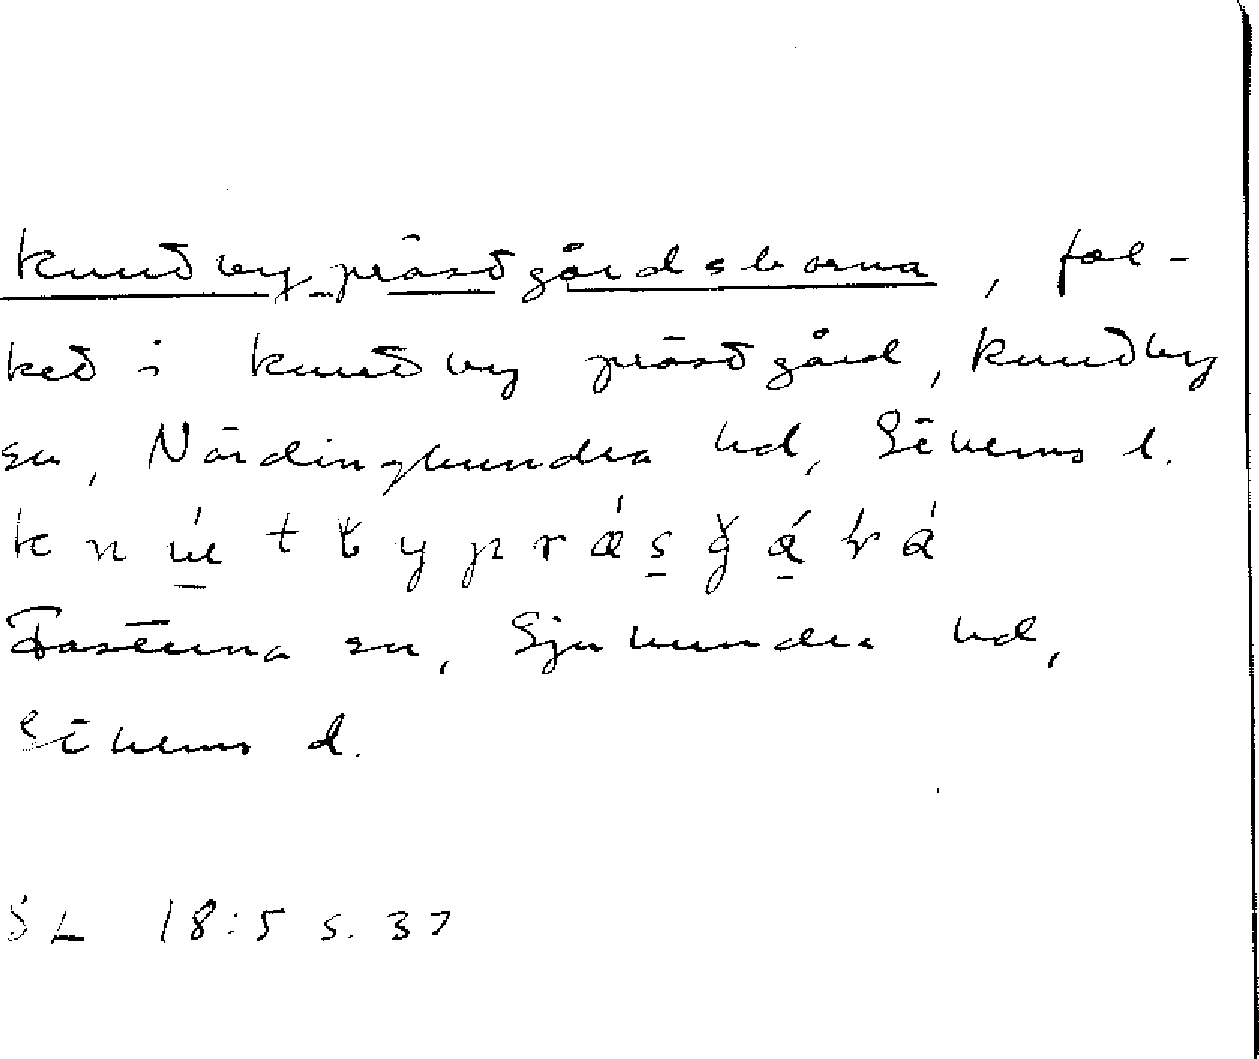 Knutby-prästgårdsborna, fol-
ket i Knutby prästgård, Knutby
sn, Närdinghundra hd, Sthlms l.
Fasterna sn, Sjuhundra hd,
Sthlms l.
SL 18:5 s. 37